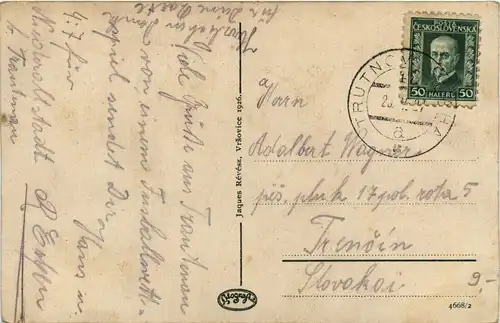 Viele Grüße aus Trautenau
von einem Fussballwett-
spiel sendet Dir
Hans u.
4:7 für
Neustadt
b. Trautenau
Herzlichen Dank
für Deine Karte
Jaques Révész, Vršovice 1926.
POŠTA
ČESKOSLOVENSKÁ
50 HALÉŘŮ 50
TRUTNOV
a
Herrn
Adalbert Wagner
pěš. pluk 17 pol. rota 5
Trenčín
Slovakei
9.-
4668/2